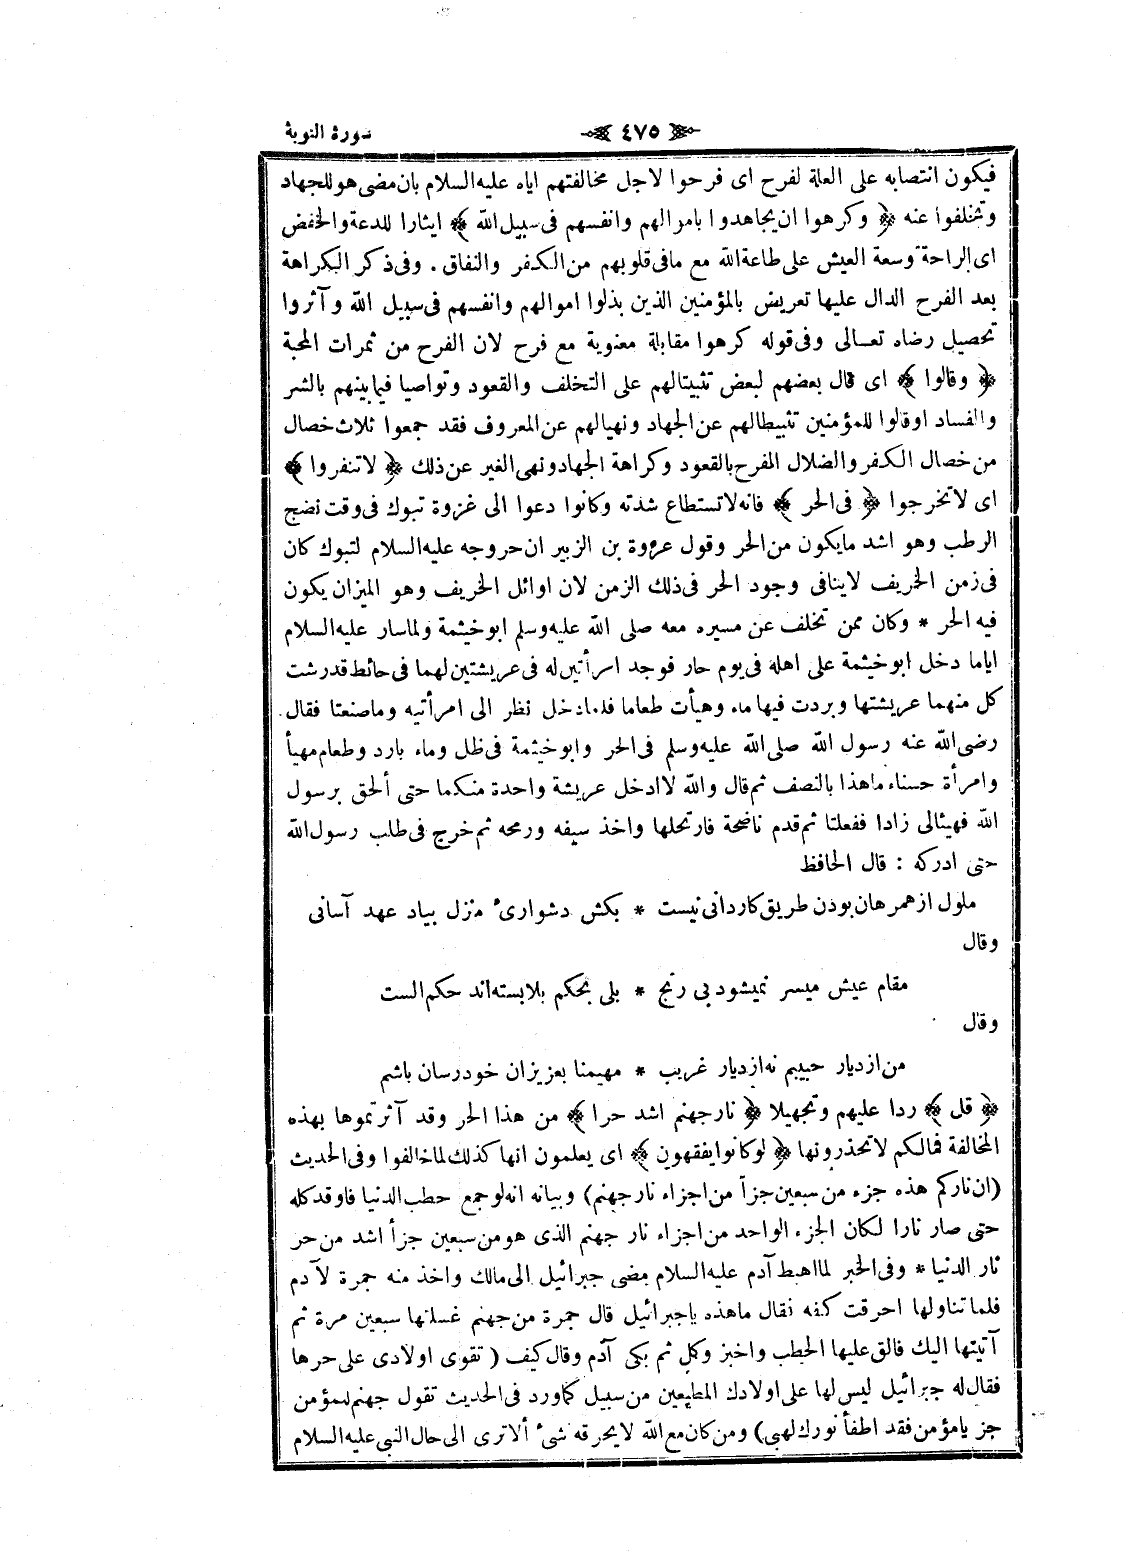 سورة التوبة ٤٧٥
فيكون انتصابه على العلة لفرح اى فرحوا لاجل مخالفتهم اياه عليه السلام بان مضى هو للجهاد
وتخلفوا عنه ﴿ وكرهوا ان يجاهدوا باموالهم وانفسهم فى سبيل الله ﴾ ايثارا للدعة والخفض
اى الراحة وسعة العيش على طاعة الله مع مافى قلوبهم من الكفر والنفاق . وفى ذكر الكراهة
بعد الفرح الدال عليها تعريض بالمؤمنين الذين بذلوا اموالهم وانفسهم فى سبيل الله وآثروا
تحصيل رضاه تعالى وفى قوله كرهوا مقابلة معنوية مع فرح لان الفرح من ثمرات المحبة
﴿ وقالوا ﴾ اى قال بعضهم لبعض تثبيتالهم على التخلف والقعود وتواصيا فيما بينهم بالشر
والفساد اوقالوا للمؤمنين تثبيطالهم عن الجهاد ونهيالهم عن المعروف فقد جمعوا ثلاث خصال
من خصال الكفر والضلال الفرح بالقعود وكراهة الجهاد ونهى الغير عن ذلك ﴿ لاتنفروا ﴾
اى لاتخرجوا ﴿ فى الحر ﴾ فانه لاتستطاع شدته وكانوا دعوا الى غزوة تبوك فى وقت نضج
الرطب وهو اشد مايكون من الحر وقول عروة بن الزبير ان خروجه عليه السلام لتبوك كان
فى زمن الخريف لاينافى وجود الحر فى ذلك الزمن لان اوائل الخريف وهو الميزان يكون
فيه الحر * وكان ممن تخلف عن مسيره معه صلى الله عليه وسلم ابوخيثمة ولماسار عليه السلام
اياما دخل ابوخيثمة على اهله فى يوم حار فوجد امرأتين له فى عريشتين لهما فى حائط قدرشت
كل منهما عريشتها وبردت فيها ماء وهيأت طعاما فلمادخل نظر الى امرأتيه وماصنعتا فقال
رضى الله عنه رسول الله صلى الله عليه وسلم فى الحر وابوخيثمة فى ظل وماء بارد وطعام مهيأ
وامرأة حسناء ماهذا بالنصف ثم قال والله لاادخل عريشة واحدة منكما حتى ألحق برسول
الله فهيئالى زادا ففعلتا ثم قدم ناضحة فارتحلها واخذ سيفه ورمحه ثم خرج فى طلب رسول الله
حتى ادركه : قال الحافظ
ملول ازهمرهان بودن طريق كاردانى نيست * بكش دشوارىء منزل بياد عهد آسانى
وقال
مقام عيش ميسر نميشود بى رنج * بلى بحكم بلا بسته اند حكم الست
وقال
من ازديار حبيبم نه ازديار غريب * مهيمنا بعزيزان خود رسان باشم
﴿ قل ﴾ ردا عليهم وتجهيلا ﴿ نارجهنم اشد حرا ﴾ من هذا الحر وقد آثرتموها بهذه
المخالفة فمالكم لاتحذرونها ﴿ لوكانوا يفقهون ﴾ اى يعلمون انها كذلك لماخالفوا وفى الحديث
(ان ناركم هذه جزء من سبعين جزأ من اجزاء نارجهنم) وبيانه انه لوجمع حطب الدنيا فاوقد كله
حتى صار نارا لكان الجزء الواحد من اجزاء نار جهنم الذى هو من سبعين جزأ اشد من حر
نار الدنيا * وفى الخبر لمااهبط آدم عليه السلام مضى جبرائيل الى مالك واخذ منه جمرة لآدم
فلما تناولها احرقت كفه فقال ماهذه ياجبرائيل قال جمرة من جهنم غسلتها سبعين مرة ثم
آتيتها اليك فالق عليها الحطب واخبز وكل ثم بكى آدم وقال كيف ( تقوى اولادى على حرها
فقال له جبرائيل ليس لها على اولادك المطيعين من سبيل كماورد فى الحديث تقول جهنم للمؤمن
جز يامؤمن فقد اطفأ نورك لهبى) ومن كان مع الله لايحرقه شىء ألاترى الى حال النبى عليه السلام